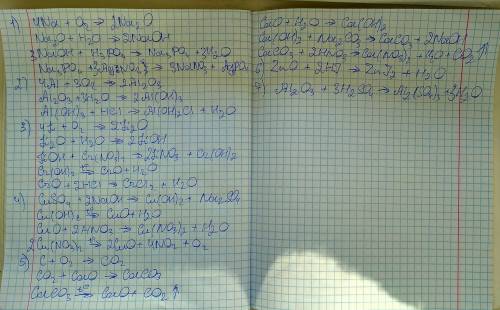 1) 4Na + O₂ → 2Na₂O
Na₂O + H₂O → 2NaOH
3NaOH + H₃PO₄ → Na₃PO₄ + 3H₂O
Na₃PO₄ + 3AgNO₃ → 3NaNO₃ + Ag₃PO₄
2) 4Al + 3O₂ → 2Al₂O₃
Al₂O₃ + 3H₂O → 2Al(OH)₃
Al(OH)₃ + HCl → Al(OH)₂Cl + H₂O
3) 4Li + O₂ → 2Li₂O
Li₂O + H₂O → 2LiOH
LiOH + Cr(NO₃)₂ → 2LiNO₃ + Cr(OH)₂
Cr(OH)₂ → CrO + H₂O
CrO + 2HCl → CrCl₂ + H₂O
4) CuSO₄ + 2NaOH → Cu(OH)₂ + Na₂SO₄
Cu(OH)₂ → CuO + H₂O
CuO + 2HNO₃ → Cu(NO₃)₂ + H₂O
2Cu(NO₃)₂ → 2CuO + 4NO₂ + O₂
5) C + O₂ → CO₂
CO₂ + CaO → CaCO₃
CaCO₃ → CaO + CO₂ ↑
CaO + H₂O → Ca(OH)₂
Ca(OH)₂ + Na₂CO₃ → CaCO₃ + 2NaOH
CaCO₃ + 2HNO₃ → Ca(NO₃)₂ + H₂O + CO₂ ↑
6) ZnO + 2HI → ZnI₂ + H₂O
Al₂O₃ + 3H₂SO₄ → Al₂(SO₄)₃ + 3H₂O